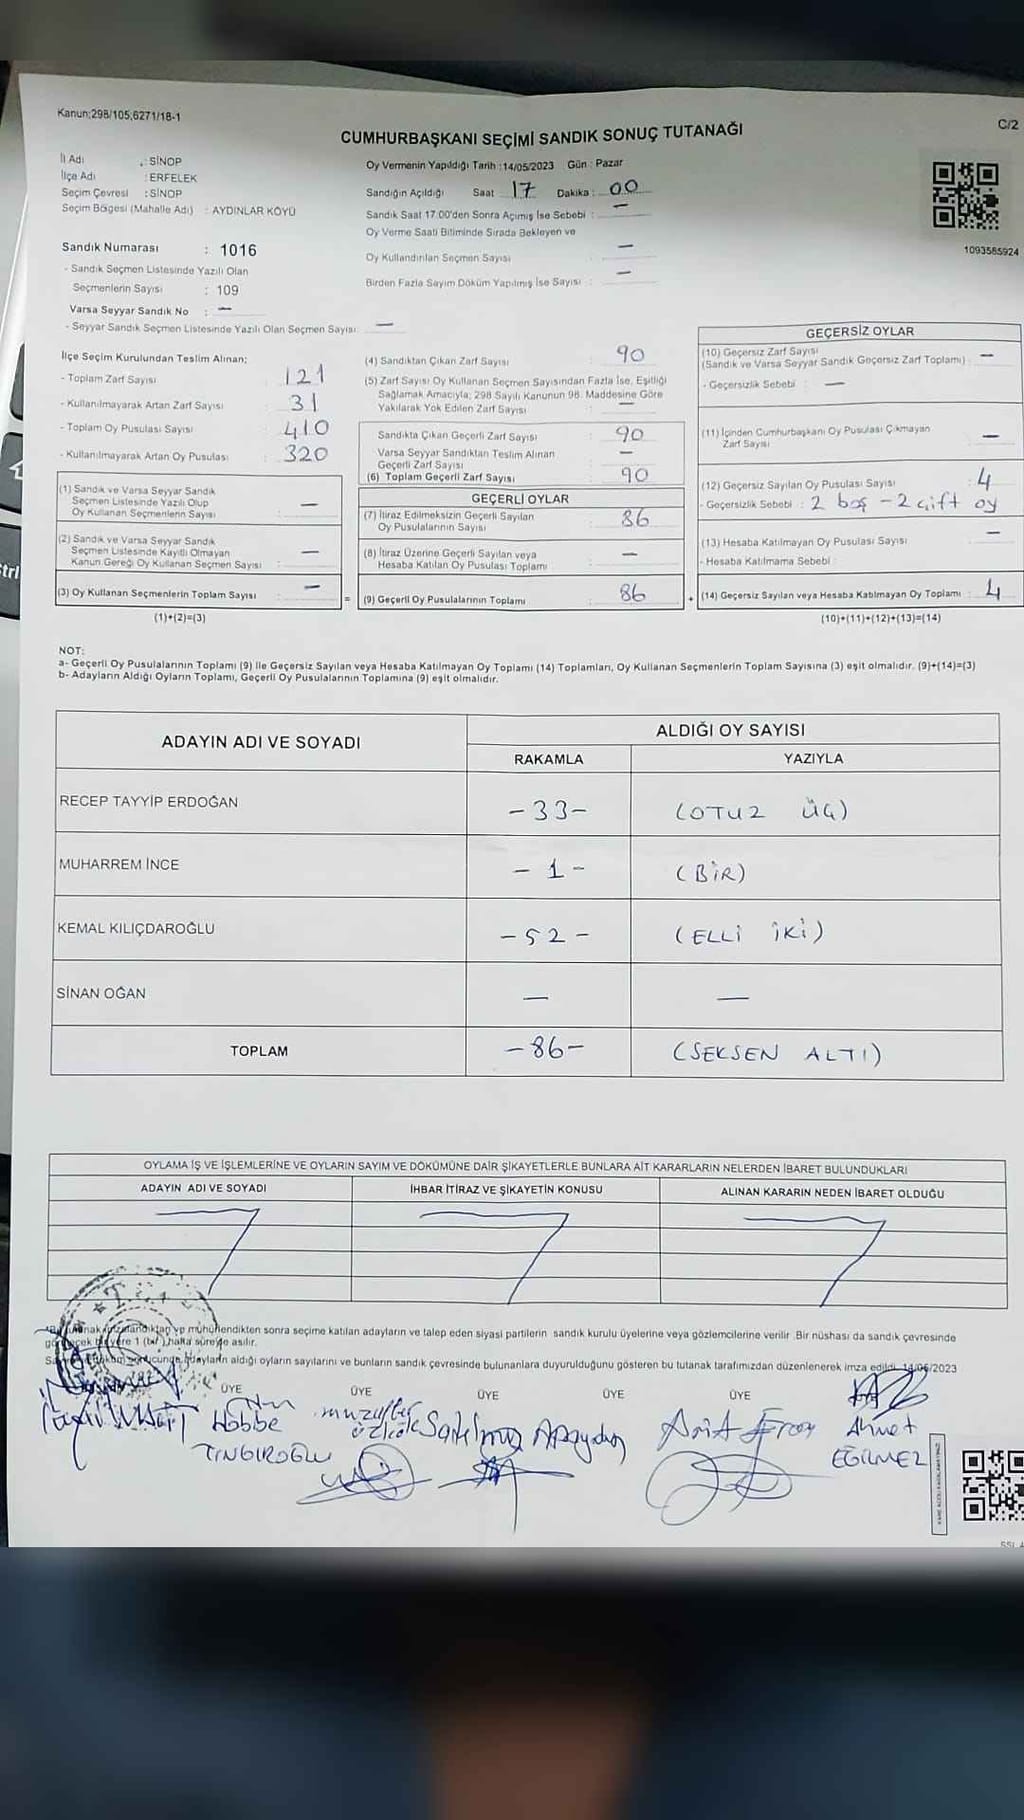 Kanun;298/105,6271/18-1
C/2
CUMHURBAŞKANI SEÇİMİ SANDIK SONUÇ TUTANAĞI
İl Adı : SİNOP
İlçe Adı : ERFELEK
Seçim Çevresi : SİNOP
Seçim Bölgesi (Mahalle Adı) : AYDINLAR KÖYÜ
Oy Vermenin Yapıldığı Tarih :14/05/2023 Gün : Pazar
Sandığın Açıldığı Saat : 17 Dakika : 00
Sandık Saat 17.00'den Sonra Açımış İse Sebebi : —
Oy Verme Saati Bitiminde Sırada Bekleyen ve
Oy Kullandırılan Seçmen Sayısı —
Birden Fazla Sayım Döküm Yapılmış İse Sayısı : —
1093585924
Sandık Numarası : 1016
- Sandık Seçmen Listesinde Yazılı Olan
Seçmenlerin Sayısı : 109
Varsa Seyyar Sandık No : —
- Seyyar Sandık Seçmen Listesinde Yazılı Olan Seçmen Sayısı: —
İlçe Seçim Kurulundan Teslim Alınan;
- Toplam Zarf Sayısı : 121
- Kullanılmayarak Artan Zarf Sayısı : 31
- Toplam Oy Pusulası Sayısı : 410
- Kullanılmayarak Artan Oy Pusulası : 320
(1) Sandık ve Varsa Seyyar Sandık
Seçmen Listesinde Yazılı Olup
Oy Kullanan Seçmenlerin Sayısı : —
(2) Sandık ve Varsa Seyyar Sandık
Seçmen Listesinde Kayıtlı Olmayan
Kanun Gereği Oy Kullanan Seçmen Sayısı : —
(3) Oy Kullanan Seçmenlerin Toplam Sayısı : —
(1)+(2)=(3)
(4) Sandıktan Çıkan Zarf Sayısı : 90
(5) Zarf Sayısı Oy Kullanan Seçmen Sayısından Fazla İse, Eşitliği
Sağlamak Amacıyla; 298 Sayılı Kanunun 98. Maddesine Göre
Yakılarak Yok Edilen Zarf Sayısı : —
Sandıkta Çıkan Geçerli Zarf Sayısı : 90
Varsa Seyyar Sandıktan Teslim Alınan
Geçerli Zarf Sayısı : —
(6) Toplam Geçerli Zarf Sayısı : 90
GEÇERLİ OYLAR
(7) İtiraz Edilmeksizin Geçerli Sayılan
Oy Pusulalarının Sayısı : 86
(8) İtiraz Üzerine Geçerli Sayılan veya
Hesaba Katılan Oy Pusulası Toplamı : —
= (9) Geçerli Oy Pusulalarının Toplamı : 86
GEÇERSİZ OYLAR
(10) Geçersiz Zarf Sayısı
(Sandık ve Varsa Seyyar Sandık Geçersiz Zarf Toplamı) : —
- Geçersizlik Sebebi : —
(11) İçinden Cumhurbaşkanı Oy Pusulası Çıkmayan
Zarf Sayısı —
(12) Geçersiz Sayılan Oy Pusulası Sayısı : 4
- Geçersizlik Sebebi : 2 boş - 2 çift oy
(13) Hesaba Katılmayan Oy Pusulası Sayısı —
- Hesaba Katılmama Sebebi :
+ (14) Geçersiz Sayılan veya Hesaba Katılmayan Oy Toplamı : 4
(10)+(11)+(12)+(13)=(14)
NOT:
a- Geçerli Oy Pusulalarının Toplamı (9) ile Geçersiz Sayılan veya Hesaba Katılmayan Oy Toplamı (14) Toplamları, Oy Kullanan Seçmenlerin Toplam Sayısına (3) eşit olmalıdır. (9)+(14)=(3)
b- Adayların Aldığı Oyların Toplamı, Geçerli Oy Pusulalarının Toplamına (9) eşit olmalıdır.
ADAYIN ADI VE SOYADI
ALDIĞI OY SAYISI
RAKAMLA YAZIYLA
RECEP TAYYİP ERDOĞAN -33- (OTUZ ÜÇ)
MUHARREM İNCE - 1 - (BİR)
KEMAL KILIÇDAROĞLU -52- (ELLİ İKİ)
SİNAN OĞAN — —
TOPLAM -86- (SEKSEN ALTI)
OYLAMA İŞ VE İŞLEMLERİNE VE OYLARIN SAYIM VE DÖKÜMÜNE DAİR ŞİKAYETLERLE BUNLARA AİT KARARLARIN NELERDEN İBARET BULUNDUKLARI
ADAYIN ADI VE SOYADI İHBAR İTİRAZ VE ŞİKAYETİN KONUSU ALINAN KARARIN NEDEN İBARET OLDUĞU
ve mühürlendikten sonra seçime katılan adayların ve talep eden siyasi partilerin sandık kurulu üyelerine veya gözlemcilerine verilir. Bir nüshası da sandık çevresinde
hafta süreyle asılır.
adayların aldığı oyların sayılarını ve bunların sandık çevresinde bulunanlara duyurulduğunu gösteren bu tutanak tarafımızdan düzenlenerek imza edildi. 14/05/2023
ÜYE ÜYE ÜYE ÜYE ÜYE
Ahmet
TINGIROĞLU
EĞİLMEZ